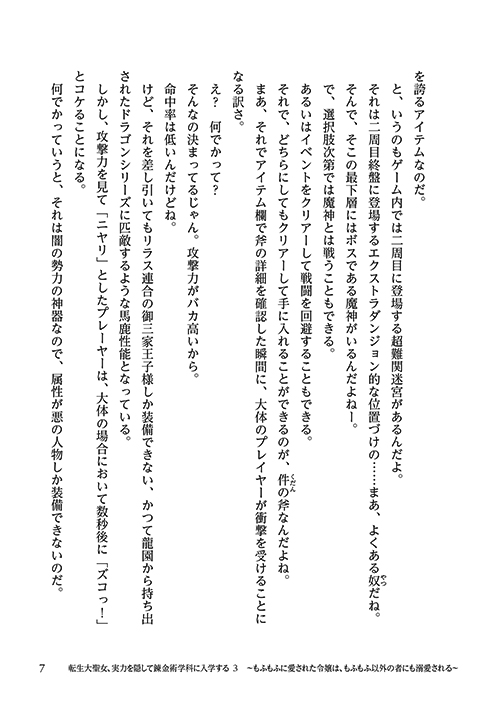 を誇るアイテムなのだ。
と、いうのもゲーム内では二周目に登場する超難関迷宮があるんだよ。
それは二周目終盤に登場するエクストラダンジョン的な位置づけの……まあ、よくある奴だね。
そんで、そこの最下層にはボスである魔神がいるんだよねー。
で、選択肢次第では魔神とは戦うこともできる。
あるいはイベントをクリアーして戦闘を回避することもできる。
それで、どちらにしてもクリアーして手に入れることができるのが、件の斧なんだよね。
まあ、それでアイテム欄で斧の詳細を確認した瞬間に、大体のプレイヤーが衝撃を受けることに
なる訳さ。
え？　何でかって？
そんなの決まってるじゃん。攻撃力がバカ高いから。
命中率は低いんだけどね。
けど、それを差し引いてもリラス連合の御三家王子様しか装備できない、かつて龍園から持ち出
されたドラゴンシリーズに匹敵するような馬鹿性能となっている。
しかし、攻撃力を見て「ニヤリ」としたプレーヤーは、大体の場合において数秒後に「ズコっ！」
とコケることになる。
何でかっていうと、それは闇の勢力の神器なので、属性が悪の人物しか装備できないのだ。
7　転生大聖女、実力を隠して錬金術学科に入学する 3　～もふもふに愛された令嬢は、もふもふ以外の者にも溺愛される～